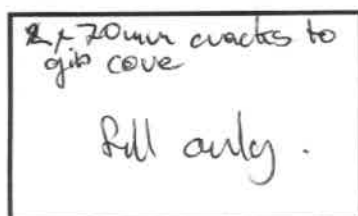 2 x 70mm cracks to
gib cove
fill only.